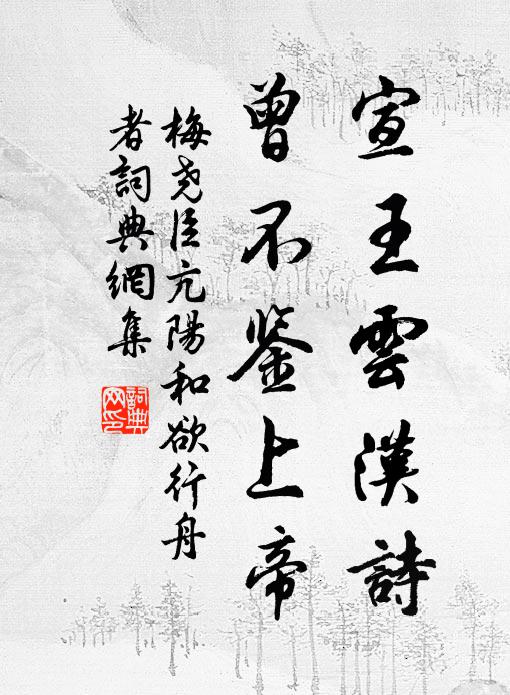 宣王雲漢詩
曾不鉴上帝
梅尧臣亢陽和欲行舟
者詞典網集
詞典
网印